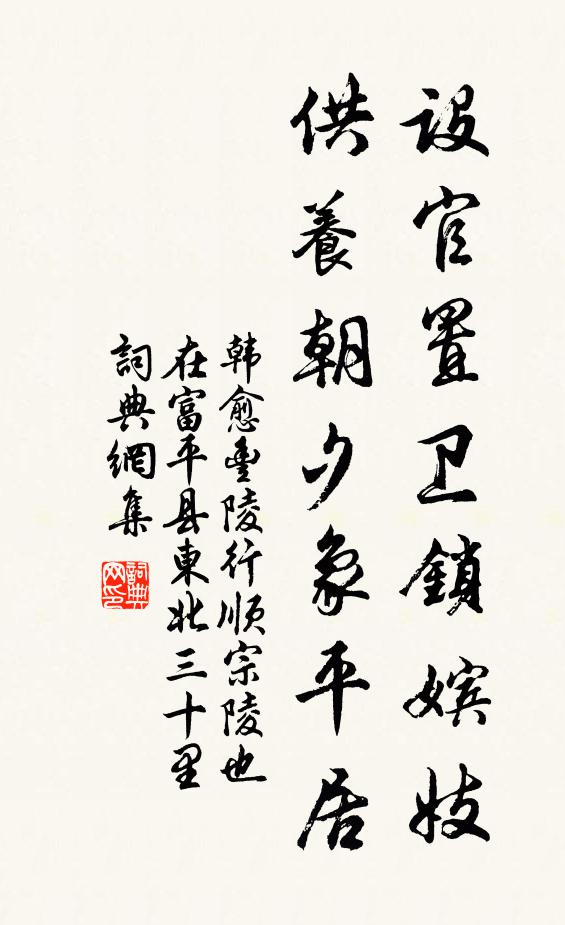 設官置卫鎖嬪妓
供養朝夕象平居
韩愈豐陵行順宗陵也
在富平县東北三十里
詞典網集
詞典网印